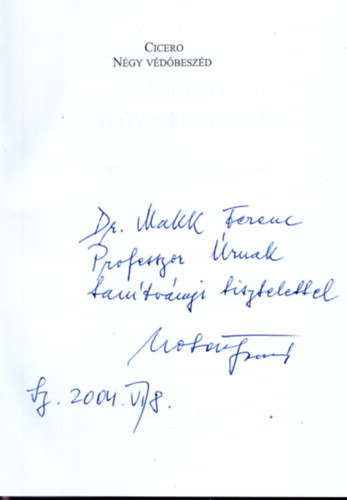 CICERO
NÉGY VÉDŐBESZÉD
Dr. Makk Ferenc
Professzor Úrnak
tanítványi tisztelettel
Sz. 2004. VI/8.